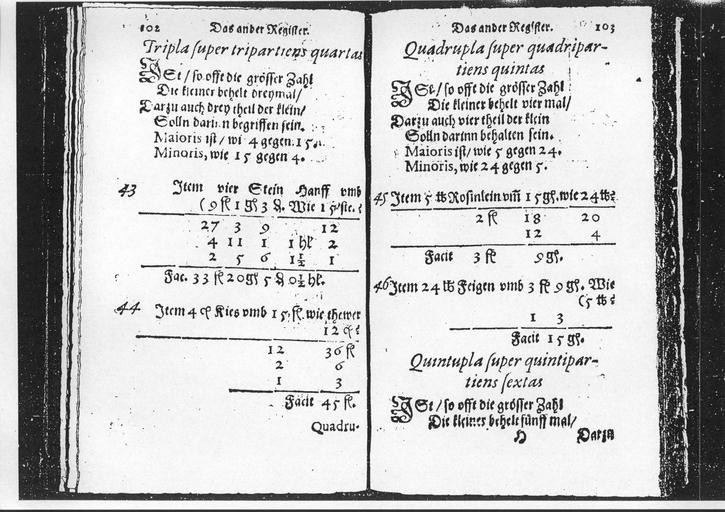 102 Das ander Register.
Tripla super tripartiens quartas
ISt / so offt die grösser Zahl
Die kleiner behelt dreymal /
Darzu auch drey theil der klein /
Solln darinn begriffen sein.
Maioris ist / wi 4 gegen 15.
Minoris, wie 15 gegen 4.
43 Item vier Stein Hanff vmb
(9 fl 1 gl 3 ₰. Wie 15 ste.?
27 3 9 12
4 11 1 1 hl 2
2 5 6 1½ 1
Fac. 33 fl 20 gl 5 ₰ 0½ hl.
44 Item 4 Kies vmb 15 fl. wie thewer
12
12 36 fl
2 6
1 3
Facit 45 fl.
Quadru-
Das ander Register. 103
Quadrupla super quadripar-
tiens quintas
ISt / so offt die grösser Zahl
Die kleiner behelt vier mal /
Darzu auch vier theil der klein
Solln darinn behalten sein.
Maioris ist / wie 5 gegen 24.
Minoris, wie 24 gegen 5.
45 Item 5 ℔ Rosinlein vm̄ 15 gl. wie 24 ℔?
2 fl 18 20
12 4
Facit 3 fl 9 gl.
46 Item 24 ℔ Feigen vmb 3 fl 9 gl. Wie
(5 ℔?
1 3
Facit 15 gl.
Quintupla super quintipar-
tiens sextas
ISt / so offt die grösser Zahl
Die kleiner behelt fünff mal /
H Darzu